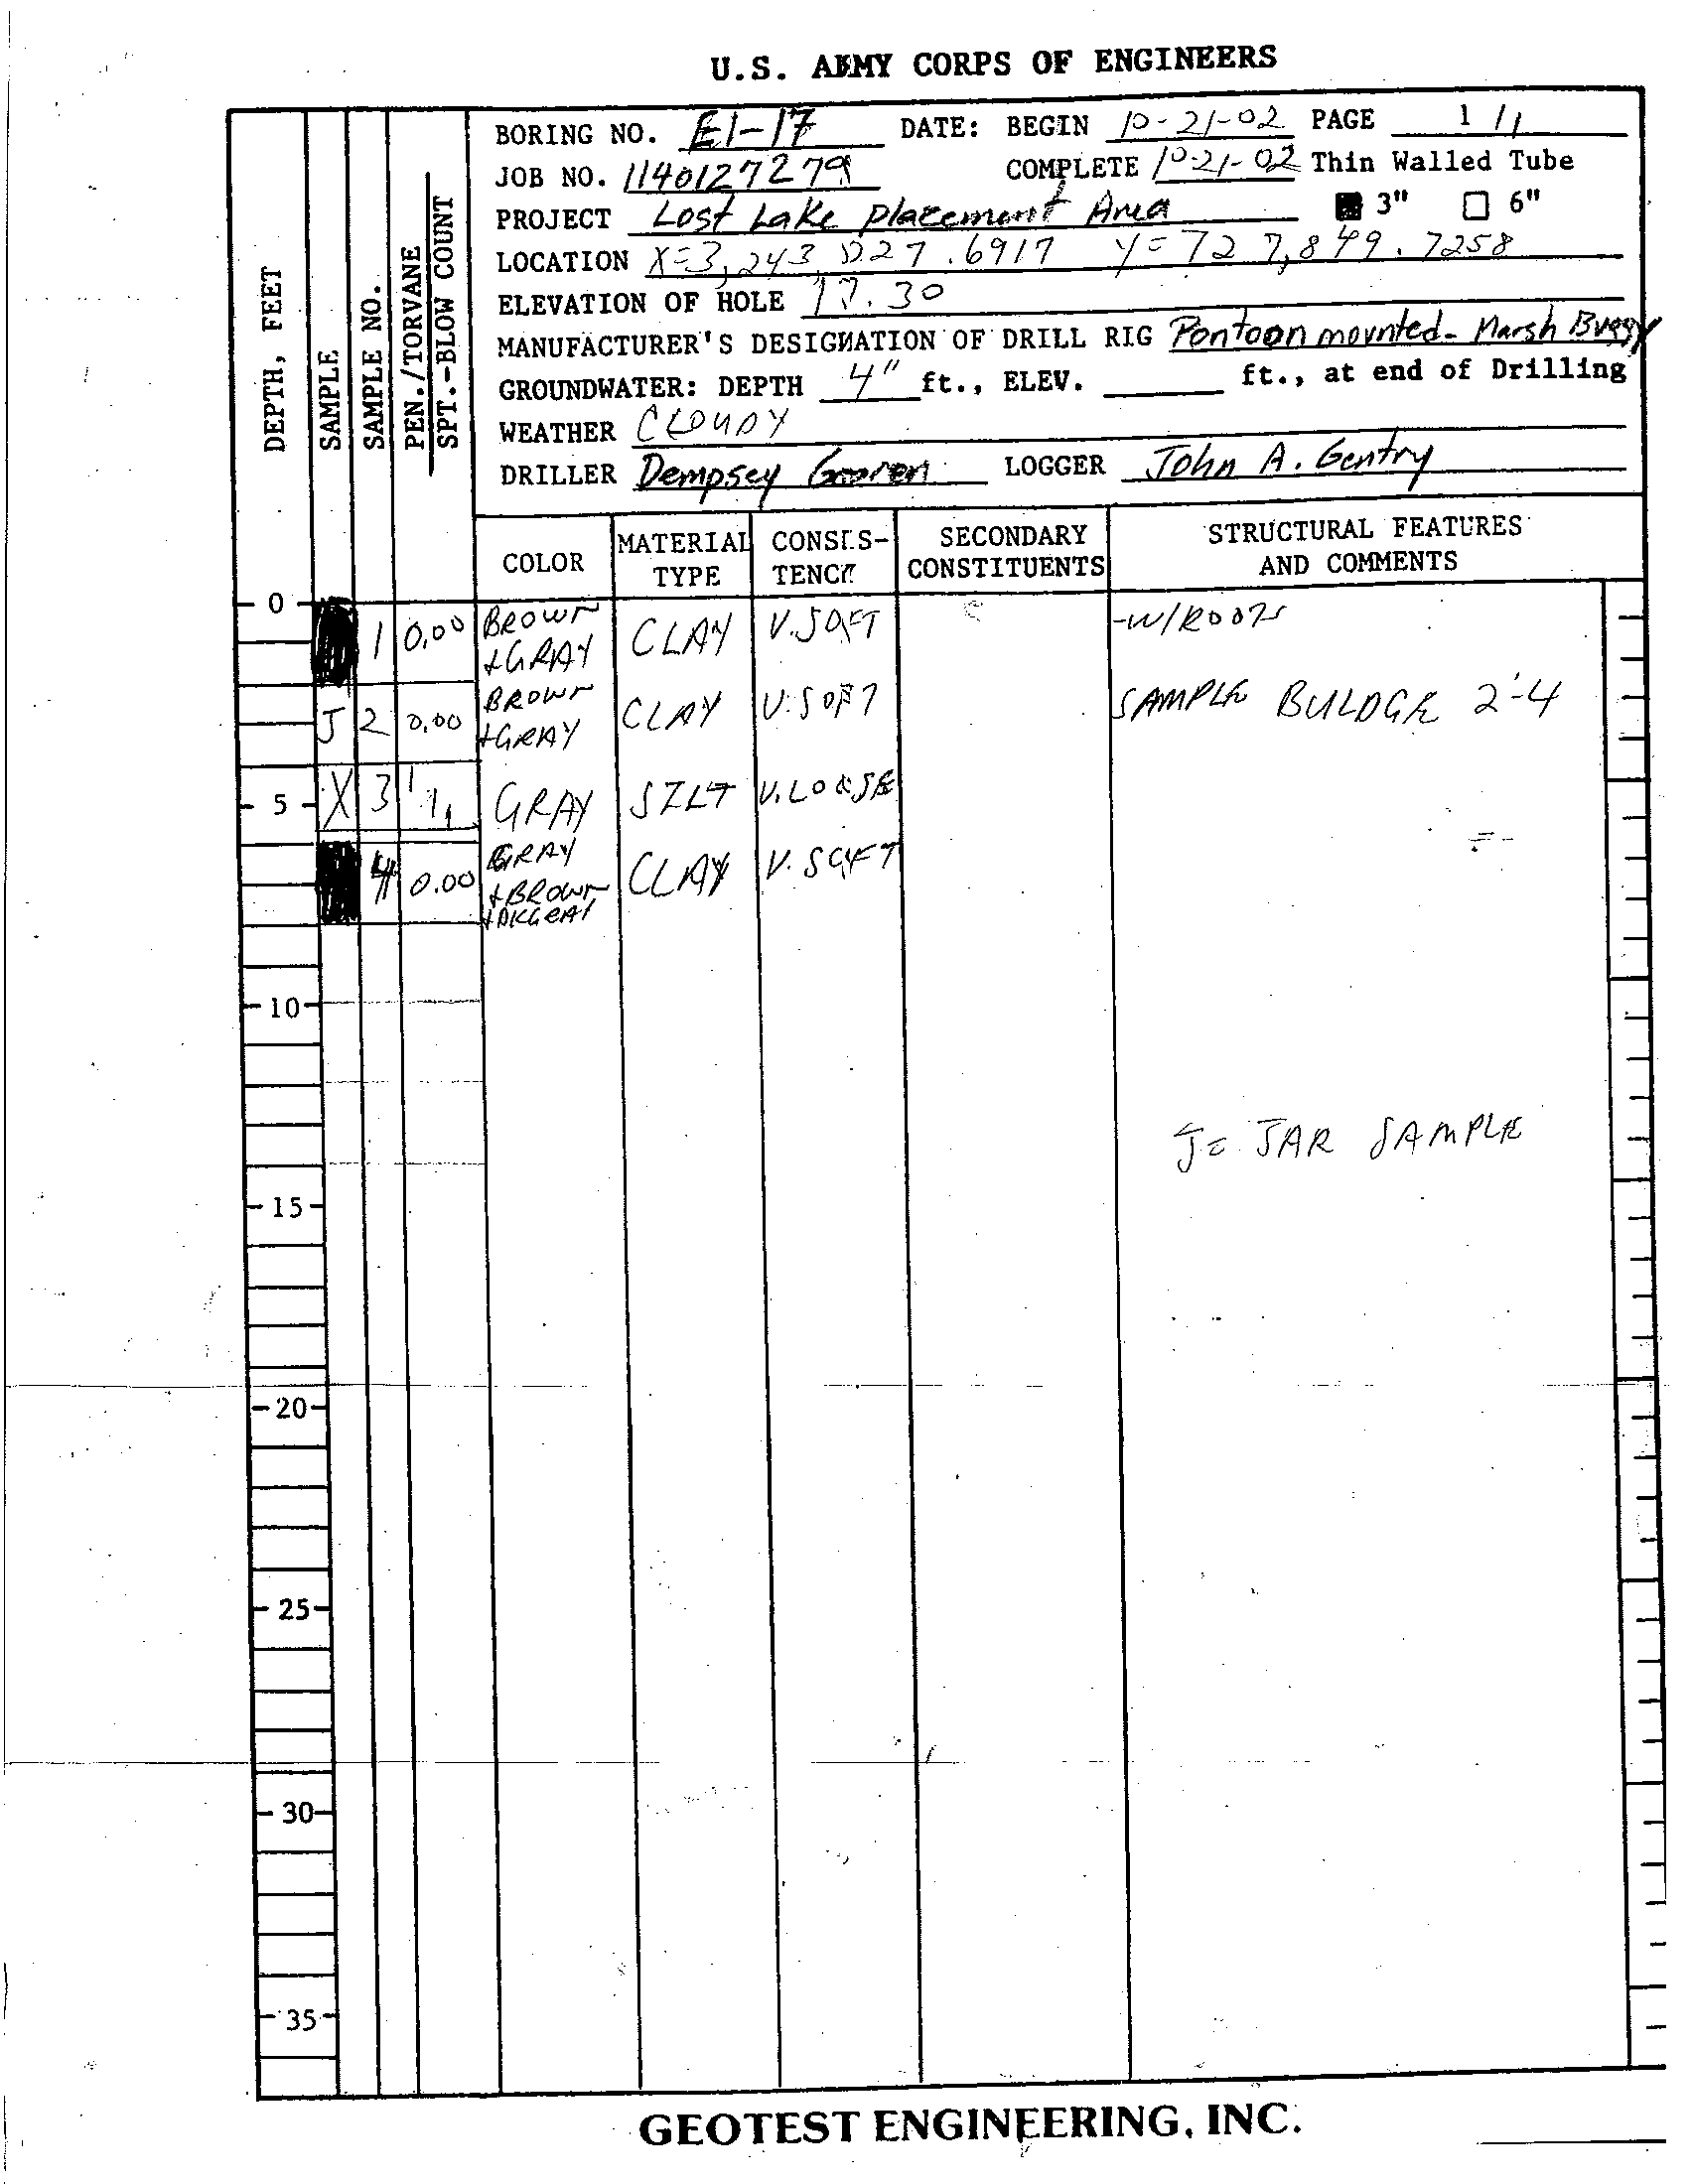 U.S. ARMY CORPS OF ENGINEERS
BORING NO. E1-17 DATE: BEGIN 10-21-02 PAGE 1/1
JOB NO. 1140127279 COMPLETE 10-21-02 Thin Walled Tube
PROJECT Lost Lake Placement Area 3" 6"
LOCATION X=3,243,027.6917 Y=727,849.7258
ELEVATION OF HOLE 17.30
MANUFACTURER'S DESIGNATION OF DRILL RIG Pontoon mounted- Marsh Buggy
GROUNDWATER: DEPTH 4" ft., ELEV. ft., at end of Drilling
WEATHER CLOUDY
DRILLER Dempsey LOGGER John A. Gentry
DEPTH, FEET
SAMPLE
SAMPLE NO.
PEN./TORVANE
SPT.-BLOW COUNT
COLOR
MATERIAL TYPE
CONSIS-
TENCY
SECONDARY
CONSTITUENTS
STRUCTURAL FEATURES
AND COMMENTS
0 1 0.00 BROWN +GRAY CLAY V.SOFT -W/ROOTS
J 2 0.00 BROWN +GRAY CLAY V.SOFT SAMPLE BULDGE 2'-4
5 X 3 1/1 GRAY SILT V.LOOSE
4 0.00 GRAY +BROWN +DKGRAY CLAY V.SOFT
10
J= JAR SAMPLE
15
20
25
30
35
GEOTEST ENGINEERING, INC.